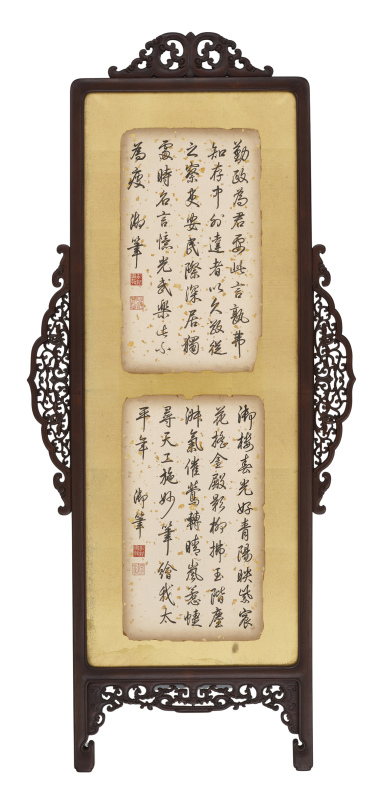 勤政為君要此言孰弗
知存中外達者以久敬從
之察吏安民際深居獨
處時名言憶光武樂此不
為疲 御筆
御樓春光好青陽映紫宸
花搖金殿影柳拂玉階塵
淑氣催鶯轉晴嵐惹
尋天工施妙筆繪我太
平年 御筆